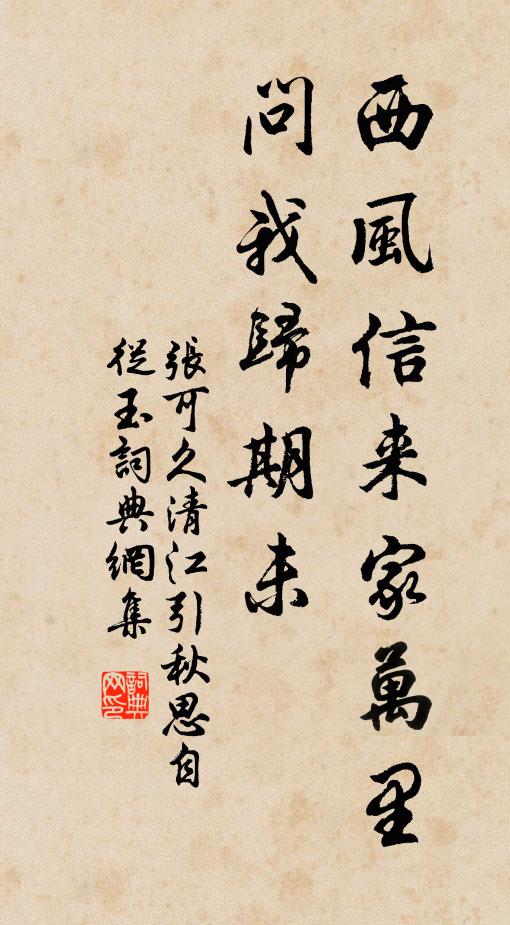 西風信来家萬里
問我歸期未
張可久清江引秋思自
從玉詞典網集
詞典
网印